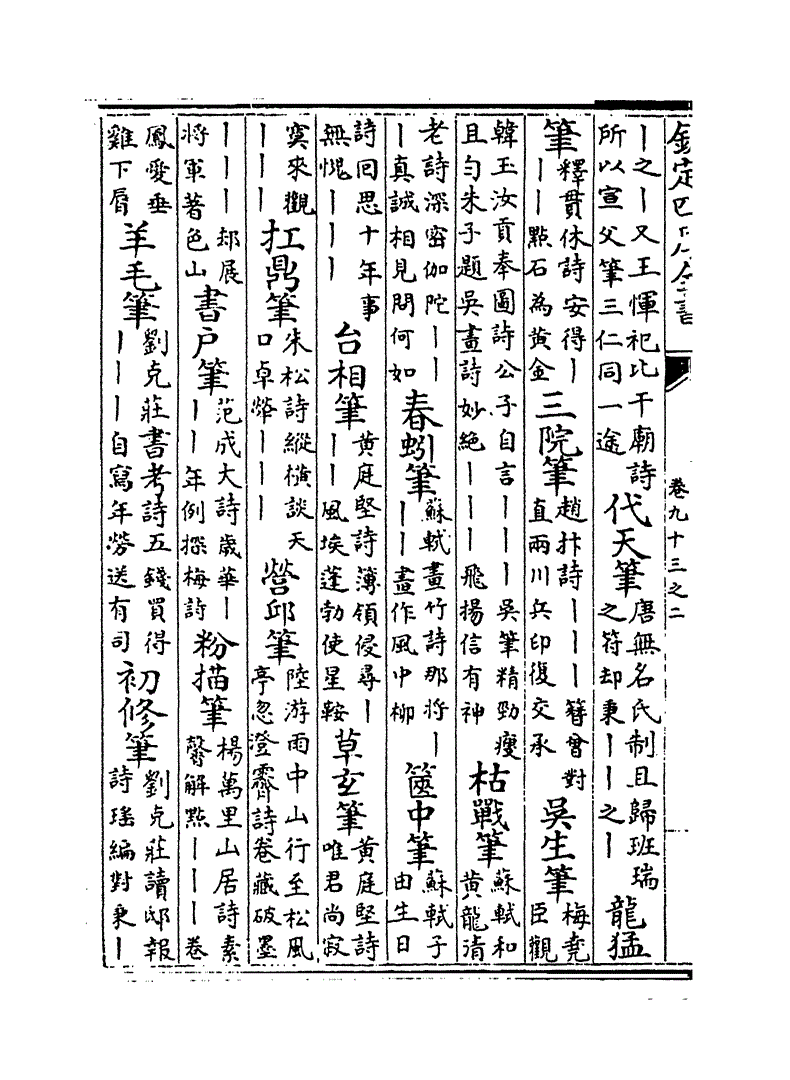 欽定四庫全書
卷九十三之二
丨之丨又王惲祀比干廟詩所以宣父筆三仁同一途 代天筆 唐無名氏制且歸班瑞之符却秉丨丨之丨 龍猛
筆 釋貫休詩安得丨丨丨點石為黄金 三院筆 趙抃詩丨丨丨簪曾對直兩川兵印復交承 吳生筆 梅堯臣觀
韓玉汝貢奉圖詩公子自言丨丨丨吳筆精勁瘦且勻朱子題吳畫詩妙絶丨丨丨飛揚信有神 枯戰筆 蘇軾和黄龍清
老詩深密伽陀丨丨丨真誠相見問何如 春蚓筆 蘇軾畫竹詩那将丨丨丨畫作風中柳 篋中筆 蘇軾子由生日
詩回思十年事無愧丨丨丨 台相筆 黄庭堅詩簿領侵尋丨丨丨風埃蓬勃使星鞍 草玄筆 黄庭堅詩唯君尚寂
寞來觀丨丨丨 扛鼎筆 朱松詩縱横談天口卓犖丨丨丨 營邱筆 陸游雨中山行至松風亭忽澄霽詩卷藏破墨
丨丨丨却展将軍著色山 書户筆 范成大詩歲華丨丨丨年例探梅詩 粉描筆 楊萬里山居詩素馨解點丨丨丨卷
鳳愛垂雞下脣 羊毛筆 劉克莊書考詩五錢買得丨丨丨自寫年勞送有司 初修筆 劉克莊讀邸報詩瑶編對秉丨